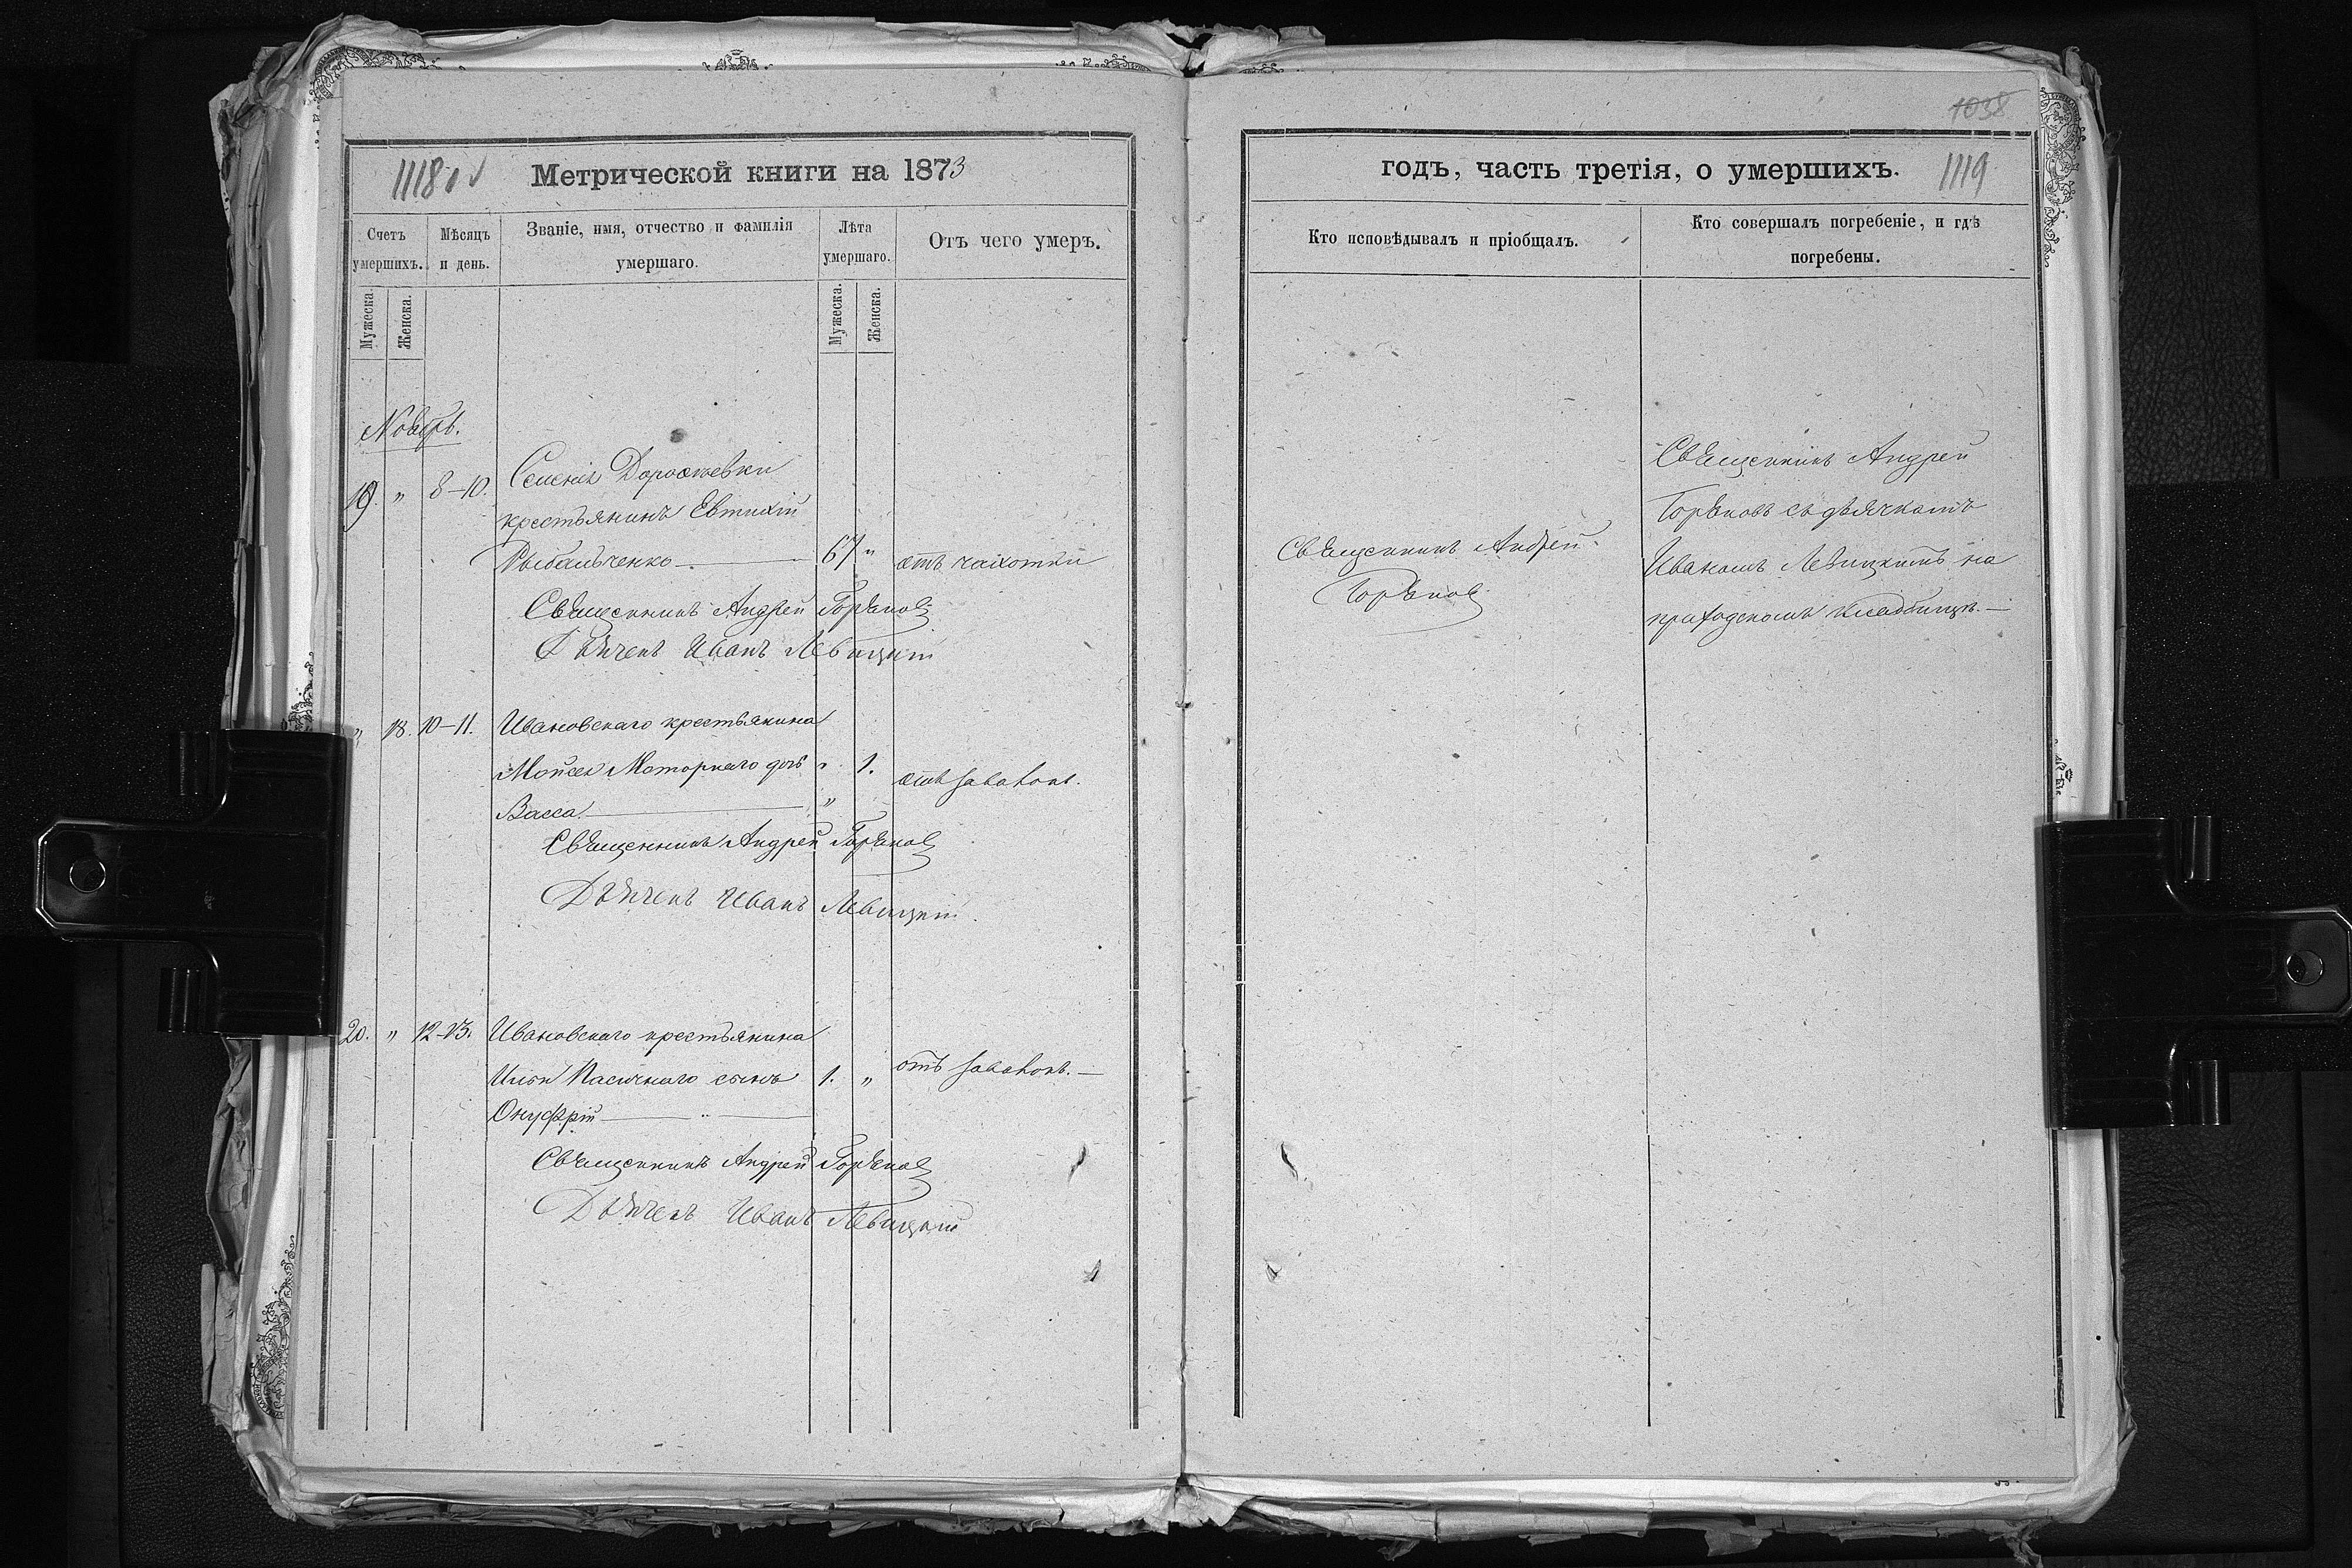 1038
1118
Метрической книги на 1873
годъ, часть третія, о умершихъ.
1119
Счетъ умершихъ.
Мѣсяцъ и день.
Званіе, имя, отчество и фамилія умершаго.
Лѣта умершаго.
Отъ чего умеръ.
Кто исповѣдывалъ и пріобщалъ.
Кто совершалъ погребеніе, и гдѣ погребены.
Мужеска.
Женска.
Мужеска.
Женска.
Ноябрь.
19. " 8-10.
Селенія
крестьянинъ Евтихій
Рыбальченко 67 " отъ чахотки
Священникъ Андрей
Дьячекъ Иванъ Левицкій
Священникъ Андрей
Священникъ Андрей
съ дьячкомъ
Иваномъ Левицкимъ на
приходскомъ кладбищѣ.
" 18. 10-11. Ивановскаго крестьянина
Мойсея Моторнаго дочь " 1.
Васса
отъ
Священникъ Андрей
Дьячекъ Иванъ Левицкій.
20. " 12-13. Ивановскаго крестьянина
Иліи Пасичнаго сынъ 1. " отъ
Онуфрій
Священникъ Андрей
Дьячекъ Иванъ Левицкій